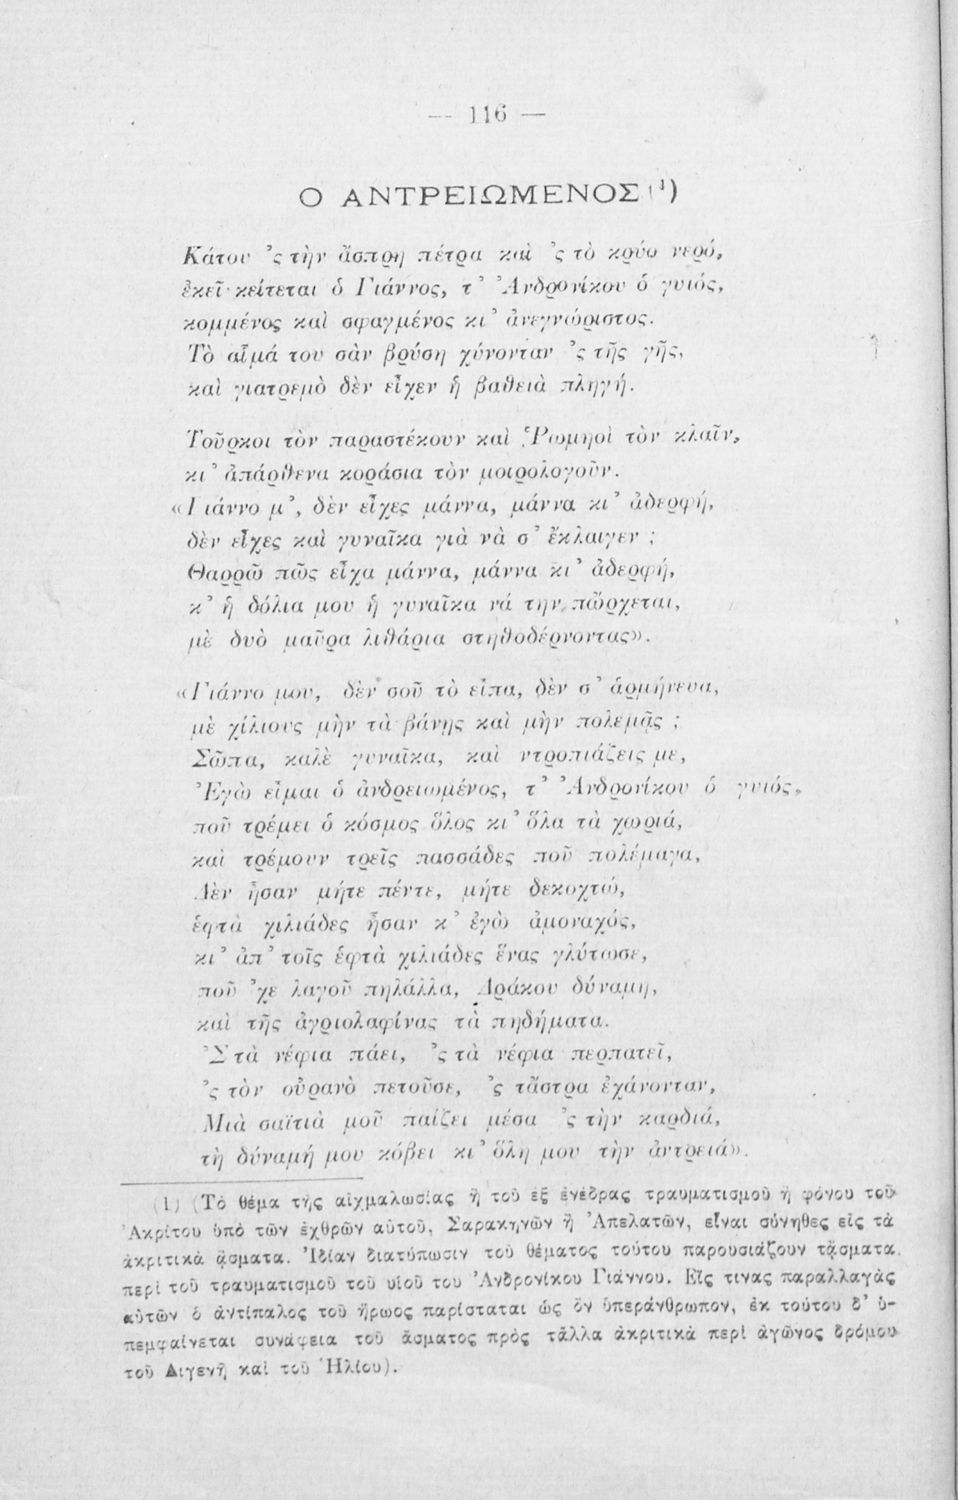 — 116 —
Ο ΑΝΤΡΕΙΩΜΕΝΟΣ (¹)
Κάτου 'ς τὴν ἄσπρη πέτρα καὶ 'ς τὸ κρύο νερό,
ἐκεῖ κείτεται ὁ Γιάννος, τ' Ἀνδρονίκου ὁ γυιός,
κομμένος καὶ σφαγμένος κι' ἀνεγνώριστος.
Τὸ αἷμά του σὰν βρύση χύνονταν 'ς τῆς γῆς,
καὶ γιατρεμὸ δὲν εἶχεν ἡ βαθειὰ πληγή.
Τοῦρκοι τὸν παραστέκουν καὶ Ῥωμηοὶ τὸν κλαῖν,
κι' ἀπάρθενα κοράσια τὸν μοιρολογοῦν.
«Γιάννο μ', δὲν εἶχες μάννα, μάννα κι' ἀδερφή,
δὲν εἶχες καὶ γυναῖκα γιὰ νὰ σ' ἔκλαιγεν ;
Θαρρῶ πῶς εἶχα μάννα, μάννα κι' ἀδερφή,
κ' ἡ δόλια μου ἡ γυναῖκα νά την, πὤρχεται,
μὲ δυὸ μαῦρα λιθάρια στηθοδέρνοντας».
«Γιάννο μου, δὲν σοῦ τὸ εἶπα, δὲν σ' ἁρμήνευα,
μὲ χίλιους μὴν τὰ βάνῃς καὶ μὴν πολεμᾷς ;
Σῶπα, καλὲ γυναῖκα, καὶ ντροπιάζεις με,
Ἐγὼ εἶμαι ὁ ἀνδρειωμένος, τ' Ἀνδρονίκου ὁ γυιός,
ποῦ τρέμει ὁ κόσμος ὅλος κι' ὅλα τὰ χωριά,
καὶ τρέμουν τρεῖς πασσάδες ποῦ πολέμαγα,
Δὲν ἦσαν μήτε πέντε, μήτε δεκοχτώ,
ἑφτὰ χιλιάδες ἦσαν κ' ἐγὼ ἀμοναχός,
κι' ἀπ' τοῖς ἑφτὰ χιλιάδες ἕνας γλύτωσε,
ποῦ 'χε λαγοῦ πηλάλλα, Δράκου δύναμη,
καὶ τῆς ἀγριολαφίνας τὰ πηδήματα.
Σ τὰ νέφια πάει, 'ς τὰ νέφια περπατεῖ,
'ς τὸν οὐρανὸ πετοῦσε, 'ς τἄστρα ἐχάνονταν,
Μιὰ σαϊτιὰ μοῦ παίζει μέσα 'ς τὴν καρδιά,
τὴ δύναμή μου κόβει κι' ὅλη μου τὴν ἀντρειά».
(1) (Τὸ θέμα τῆς αἰχμαλωσίας ἢ τοῦ ἐξ ἐνέδρας τραυματισμοῦ ἢ φόνου τοῦ
Ἀκρίτου ὑπὸ τῶν ἐχθρῶν αὐτοῦ, Σαρακηνῶν ἢ Ἀπελατῶν, εἶναι σύνηθες εἰς τὰ
ἀκριτικὰ ᾄσματα. Ἰδίαν διατύπωσιν τοῦ θέματος τούτου παρουσιάζουν τᾄσματα
περὶ τοῦ τραυματισμοῦ τοῦ υἱοῦ του Ἀνδρονίκου Γιάννου. Εἴς τινας παραλλαγὰς
αὐτῶν ὁ ἀντίπαλος τοῦ ἥρωος παρίσταται ὡς ὂν ὑπεράνθρωπον, ἐκ τούτου δ' ὑ-
πεμφαίνεται συνάφεια τοῦ ᾄσματος πρὸς τἆλλα ἀκριτικὰ περὶ ἀγῶνος δρόμου
τοῦ Διγενῆ καὶ τοῦ Ἡλίου).